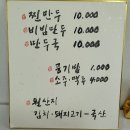 찐만두 10.000
비빔만두 10.000
만두국 10.000
공기밥 1.000
소주.맥주 4.000
원산지
김치.돼지고기-국산